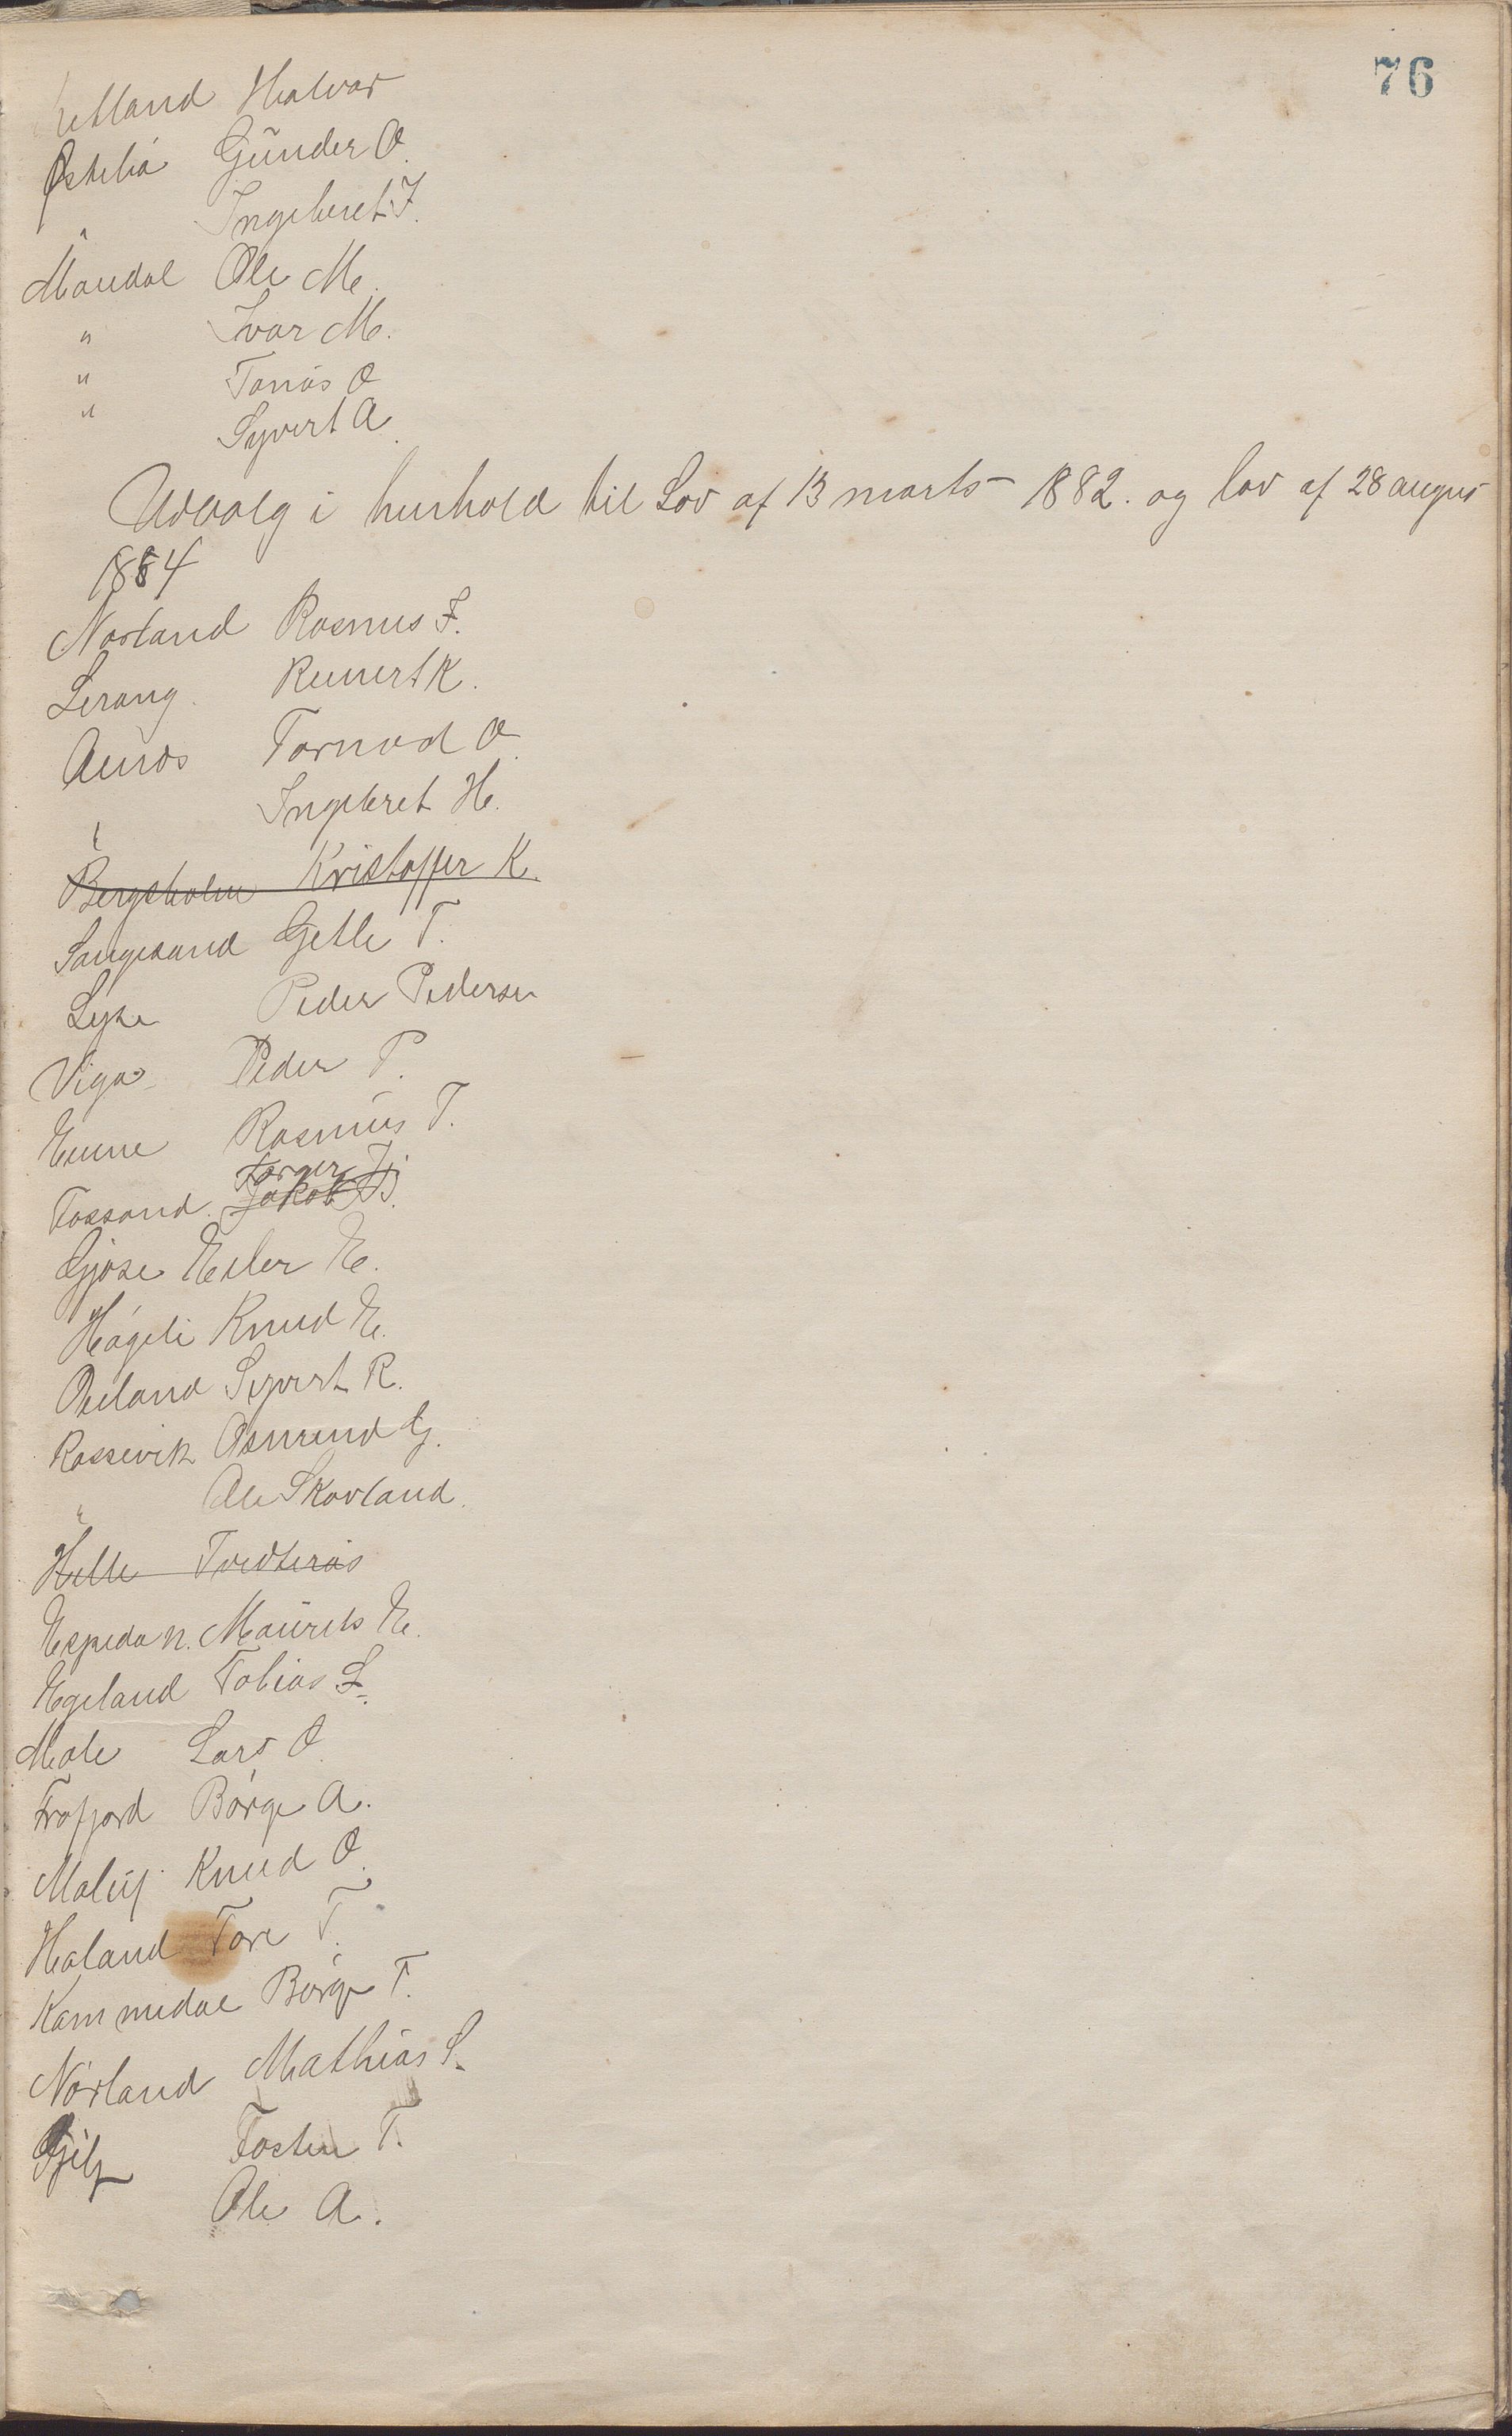 76
Helland Halvar
Østebø Gunder O.
" Ingeberet J.
Maudal Ole M.
" Ivar M.
" Tonas O
" Syvert A.
Udvalg i henhold til Lov af 13 marts 1882. og lov af 28 augus
1884
Norland Rasmus F.
Lerang Reinert K.
Auras Tormod O.
Ingeberet H.
Bergsholm Kristoffer K.
Sangesand Getle T.
Lyse Peder Pedersen
Viga Peder P.
Eiene Rasmus T.
Torger
Fossand Jakob
Gjøse Esler E.
Høgeli Knud E.
Øiland Syvert R.
Rossevik Asmund G.
" Ole Skovland.
Helle Tvedterås
Espeda n. Maurits E.
Egeland Tobias L.
Mole Lars O.
Frafjord Børge A.
Molaug Knud O.
Haland Tore T.
Kommedal Børge T.
Nørland Mathias S.
Gilj Tosten T.
Ole A.